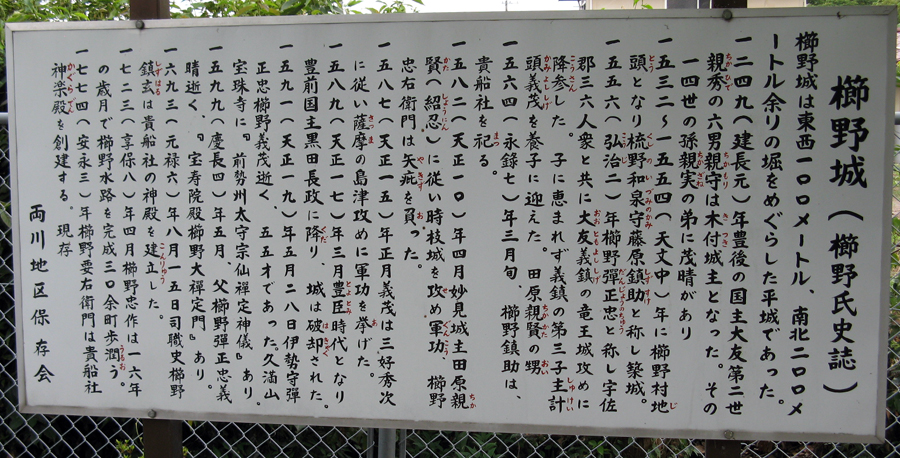 櫛野城（櫛野氏史誌）
櫛野城は東西一〇〇メートル、南北二〇〇メ
ートル余りの堀をめぐらした平城であった。
一二四九（建長元）年豊後の国主大友第二世
親秀の六男親守は木付城主となった。その
一四世の孫親実の弟に茂晴があり
一五三二～一五五四（天文中）年に櫛野村地
頭となり梳野和泉守藤原鎮助と称し築城。
一五五六（弘治二）年櫛野弾正忠と称し宇佐
郡三六人衆と共に大友義鎮の竜王城攻めに
降参した。子に恵まれず義鎮の第三子主計
頭義茂を養子に迎えた。田原親賢の甥
一五六四（永錄七）年三月旬、櫛野鎮助は、
貴船社を祀る。
一五八二（天正一〇）年四月妙見城主田原親
賢（紹忍）に従い時枝城を攻め軍功　櫛野
忠右衛門は矢疵を負った。
一五八七（天正一五）年正月義茂は三好秀次
に従い薩摩の島津攻めに軍功を挙げた。
一五八九（天正一七）年三月豊臣時代となり
豊前国主黒田長政に降り、城は破却された。
一五九一（天正一九）年五月二八日伊勢守彈
正忠櫛野義茂逝く、五五才であった久満山
宝珠寺に『前勢州太守宗仙禅定神儀』あり。
一五九九（慶長四）年五月、父櫛野彈正忠義
晴逝く、『宝寿院殿櫛野大禅定門』あり。
一六九三（元禄六）年八月一五日司職史櫛野
鎮玄は貴船社の神殿を建立した。
一七二三（享保八）年四月櫛野忠作は一六年
の歳月で櫛野水路を完成三〇余町歩潤う。
一七七四（安永三）年櫛野要右衛門は貴船社
神楽殿を創建する。現存
両川地区保存会